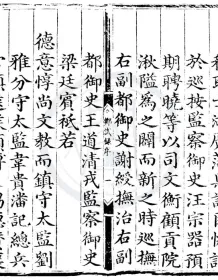 於巡按監察御史汪宗器預
期聘曉等以司文衡顧貢院
湫隘爲之闢而新之時巡撫
右副都御史謝綬撫治右副
都御史王道清戎監察御史
梁廷賓祗若
德意惇尚文教而鎮守太監劉
雅分守太監韋貴潘記總兵